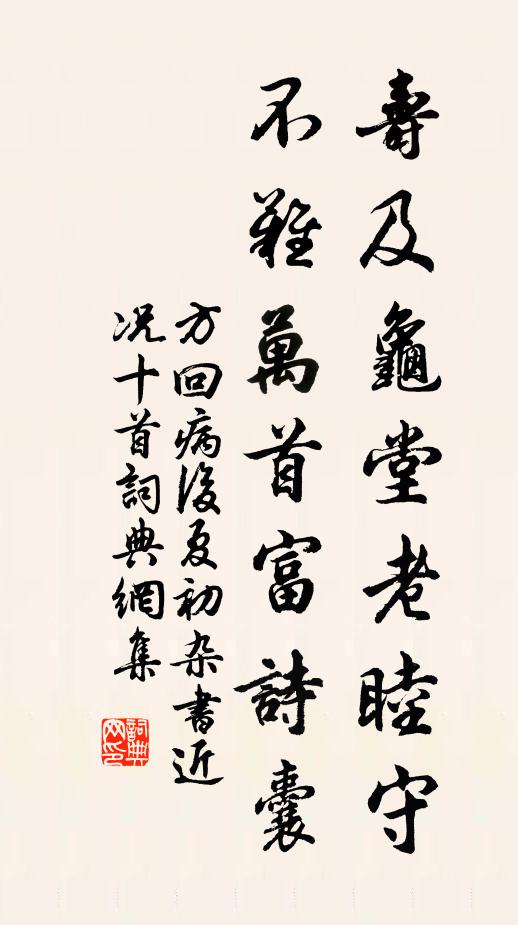 壽及龜堂老睦守
不難萬首富詩囊
方回病後夏初杂書近
况十首詞典網集
詞典
网印